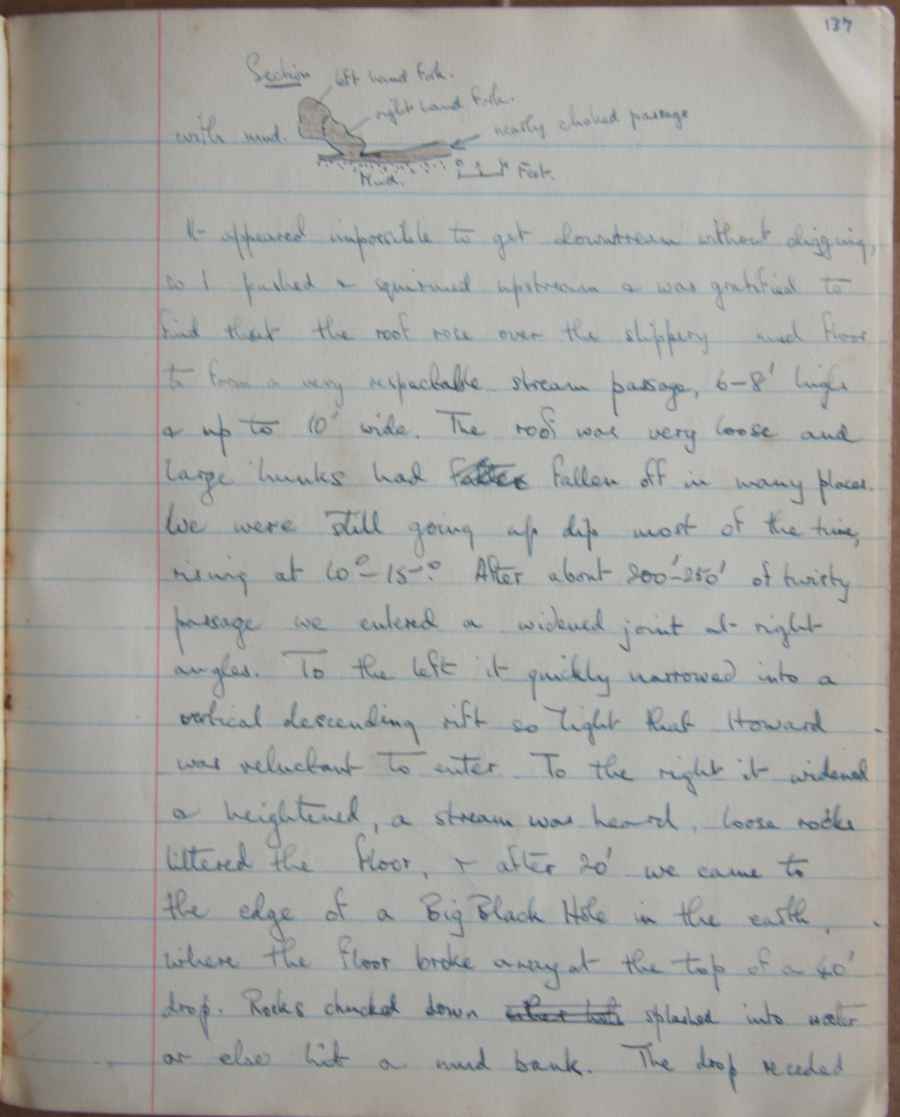 137
Section
left hand fork.
right hand fork.
nearly choked passage
with mud.
Mud.
Feet.
It appeared impossible to get downstream without digging,
so I pushed & squirmed upstream & was gratified to
find that the roof rose over the slippery mud floor
to form a very respectable stream passage, 6-8' high
& up to 10' wide. The roof was very loose and
large hunks had fallen off in many places.
We were still going up dip most of the time,
rising at 10°-15°. After about 200'-250' of twisty
passage we entered a widened joint at right
angles. To the left it quickly narrowed into a
vertical descending rift so tight that Howard
was reluctant to enter. To the right it widened
& heightened, a stream was heard, loose rocks
littered the floor, & after 20' we came to
the edge of a Big Black Hole in the earth,
where the floor broke away at the top of a 40'
drop. Rocks chucked down splashed into water
or else hit a mud bank. The drop needed